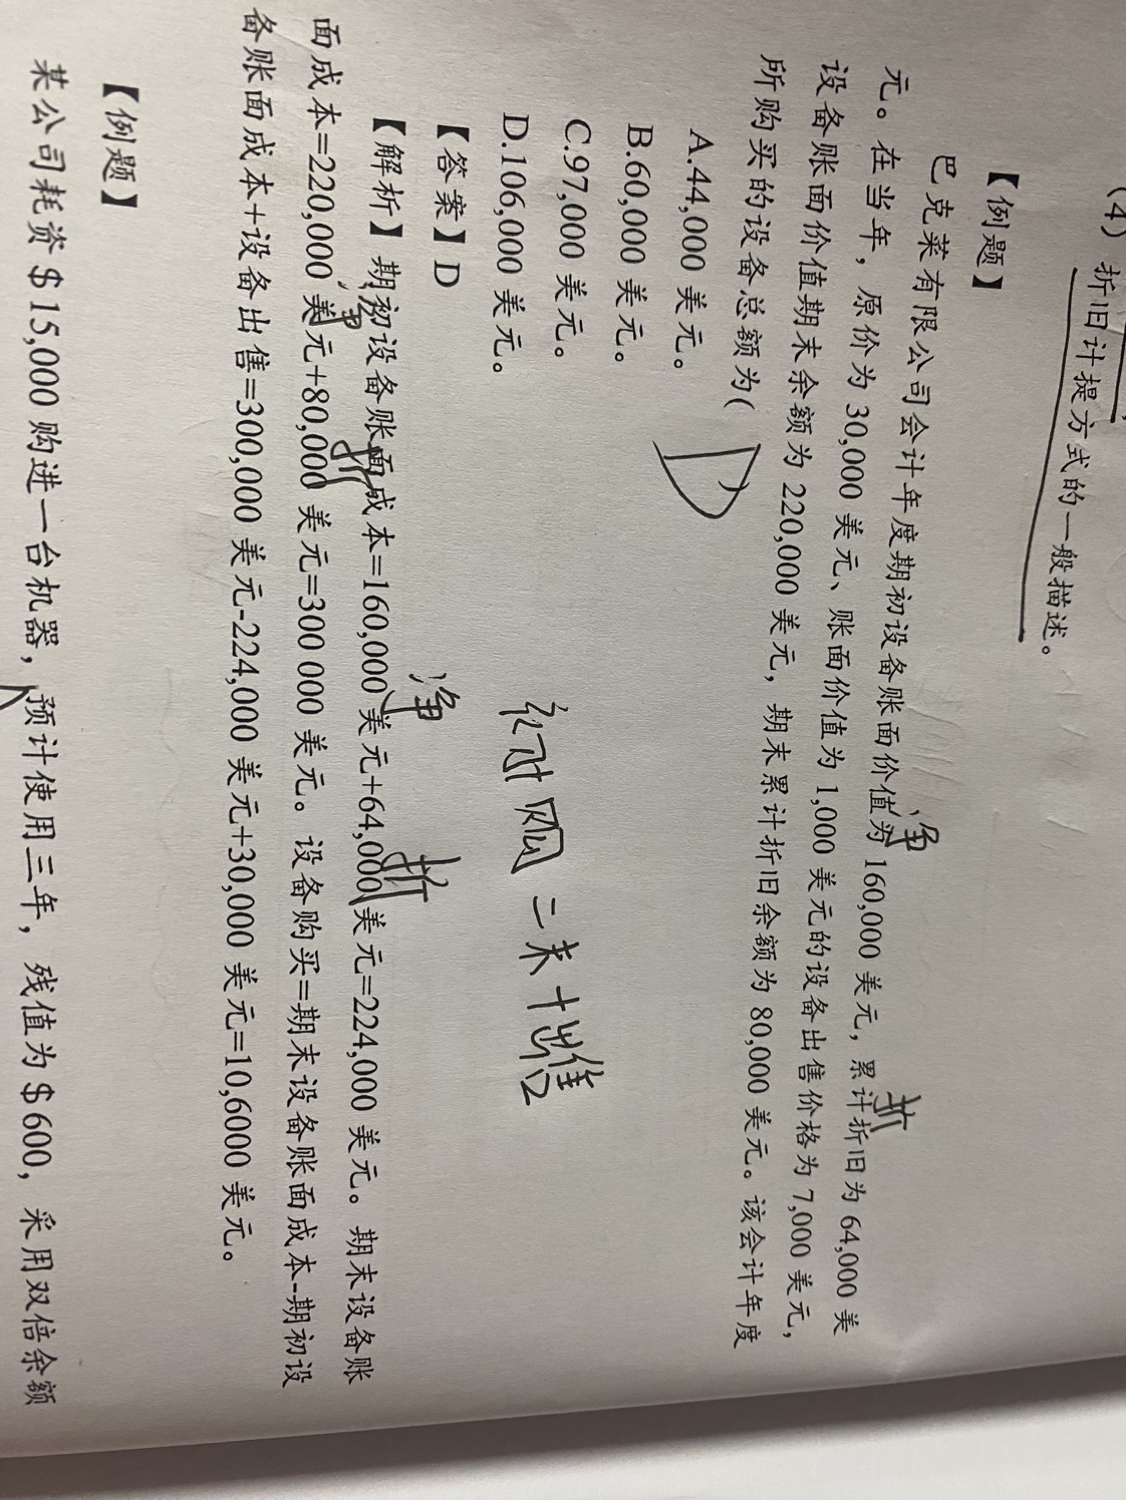 （4）折旧计提方式的一般描述。
【例题】
巴克莱有限公司会计年度期初设备账面价值为 160,000 美元，累计折旧为 64,000 美
净
折
元。在当年，原价为 30,000 美元、账面价值为 1,000 美元的设备出售价格为 7,000 美元，
设备账面价值期末余额为 220,000 美元，期末累计折旧余额为 80,000 美元。该会计年度
所购买的设备总额为(
D
A.44,000 美元。
B.60,000 美元。
C.97,000 美元。
D.106,000 美元。
初+购=末+出售
【答案】D
净
折
【解析】期初设备账面成本=160,000 美元+64,000 美元=224,000 美元。期末设备账
净
折
面成本=220,000 美元+80,000 美元=300 000 美元。设备购买=期末设备账面成本-期初设
备账面成本+设备出售=300,000 美元-224,000 美元+30,000 美元=10,6000 美元。
【例题】
某公司耗资＄15,000 购进一台机器，预计使用三年，残值为＄600，采用双倍余额